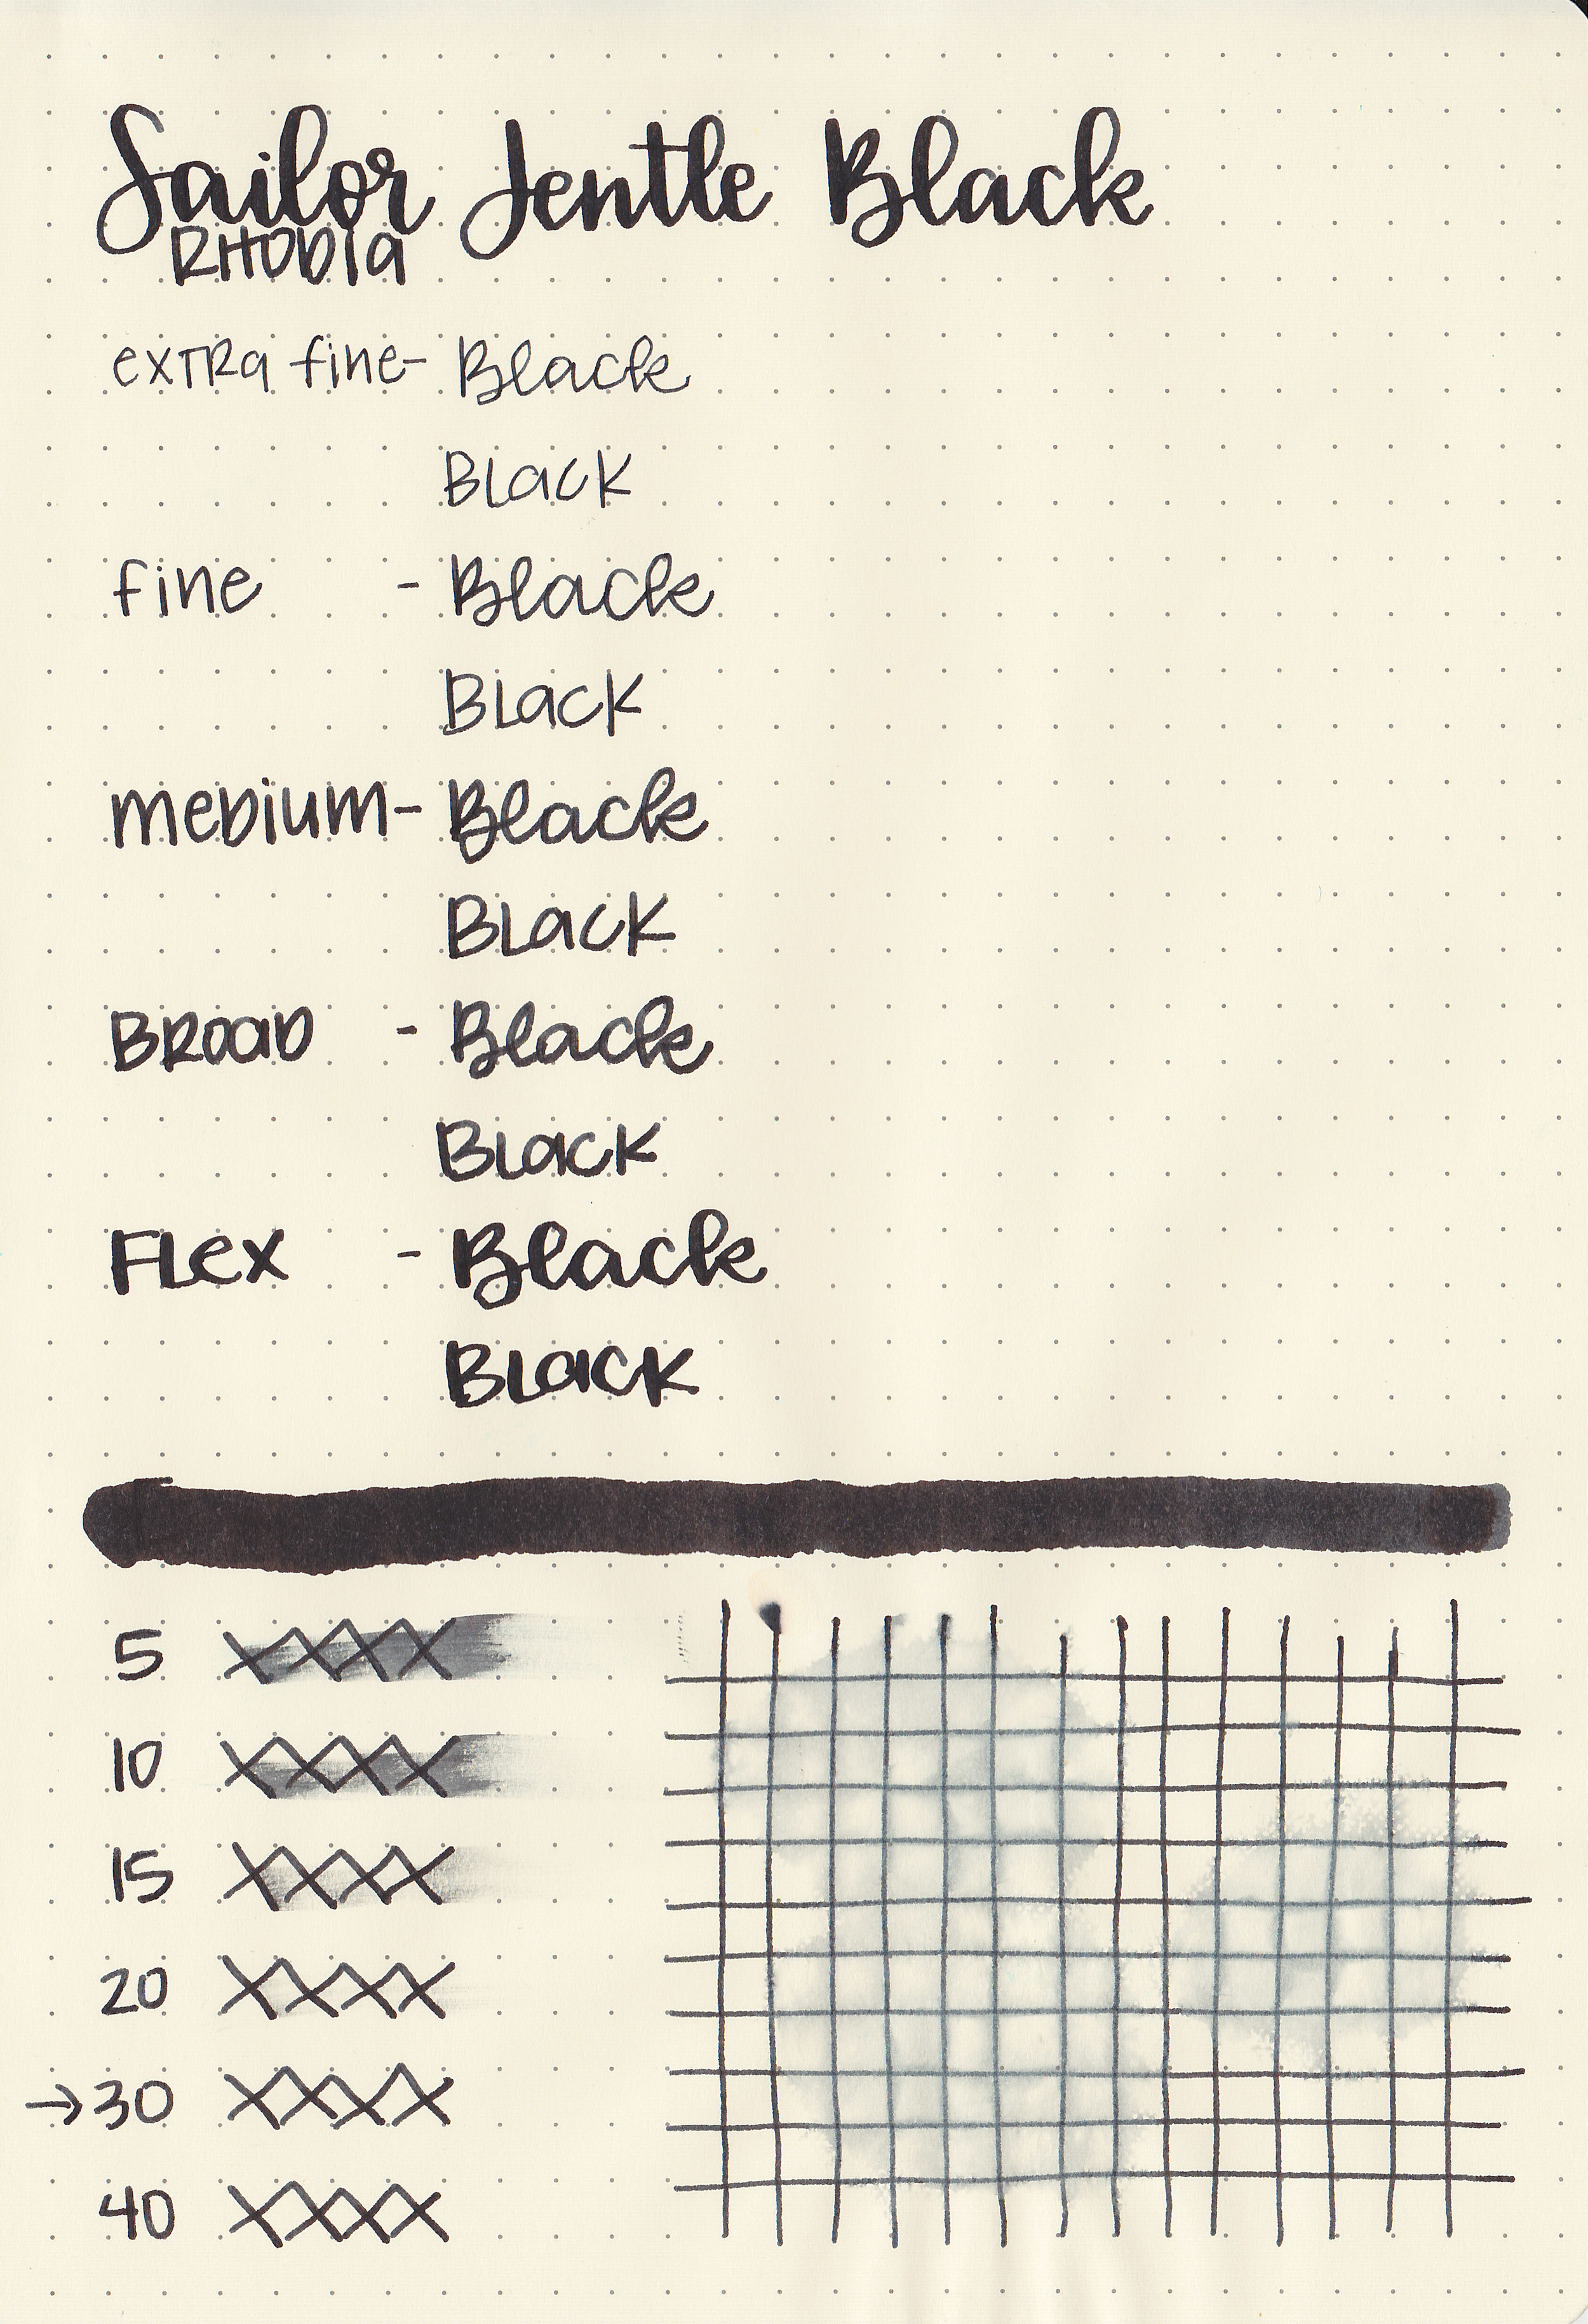 Sailor Jentle Black
RHODIA
extra fine- Black
Black
fine - Black
Black
medium- Black
Black
Broad - Black
Black
Flex - Black
Black
5 XXXX
10 XXXX
15 XXXX
20 XXXX
→30 XXXX
40 XXXX